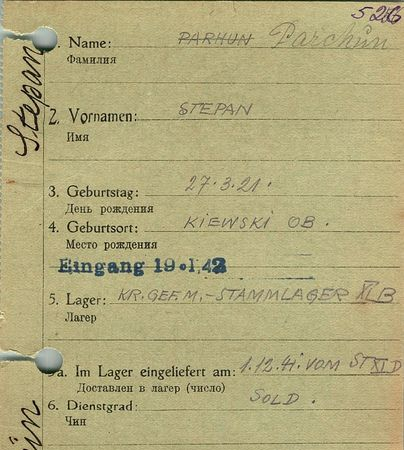 526
1. Name: PARHUN Parchun
Фамилия
Stepan
2. Vornamen: STEPAN
Имя
3. Geburtstag: 27.3.21.
День рождения
4. Geburtsort: KIEWSKI OB.
Место рождения
Eingang 19.1.42
5. Lager: KR. GEF. M.-STAMMLAGER XI B
Лагер
5a. Im Lager eingeliefert am: 1.12.41. VOM ST XI D
Доставлен в лагер (число)
6. Dienstgrad: SOLD.
Чин